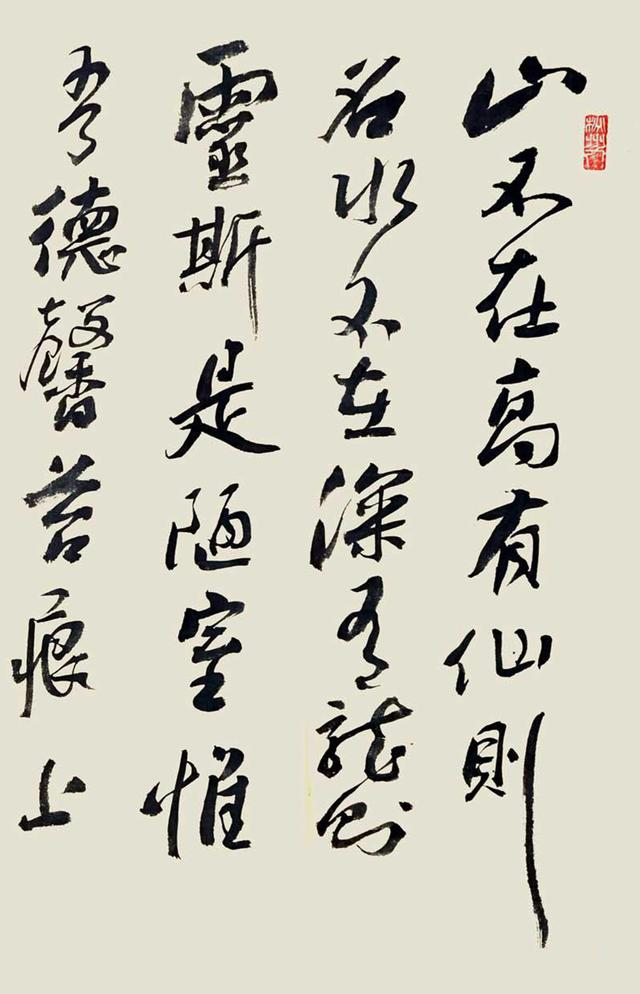 山不在高有仙則
名水不在深有龍則
靈斯是陋室惟
吾德馨苔痕上